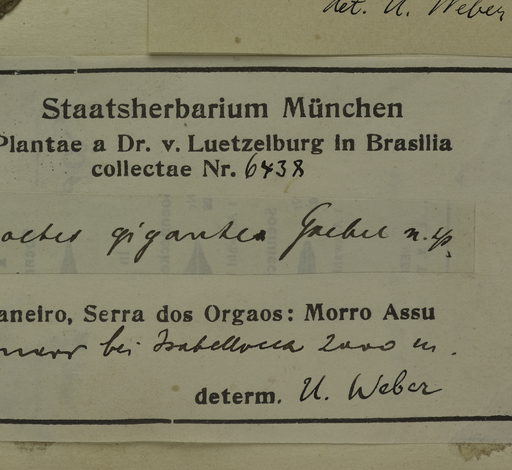 det. U. Weber
Staatsherbarium München
Plantae a Dr. v. Luetzelburg in Brasilia
collectae Nr. 6438
oetes gigantea Goebel n. sp.
aneiro, Serra dos Orgaos: Morro Assu
bei 2000 m.
determ. U. Weber